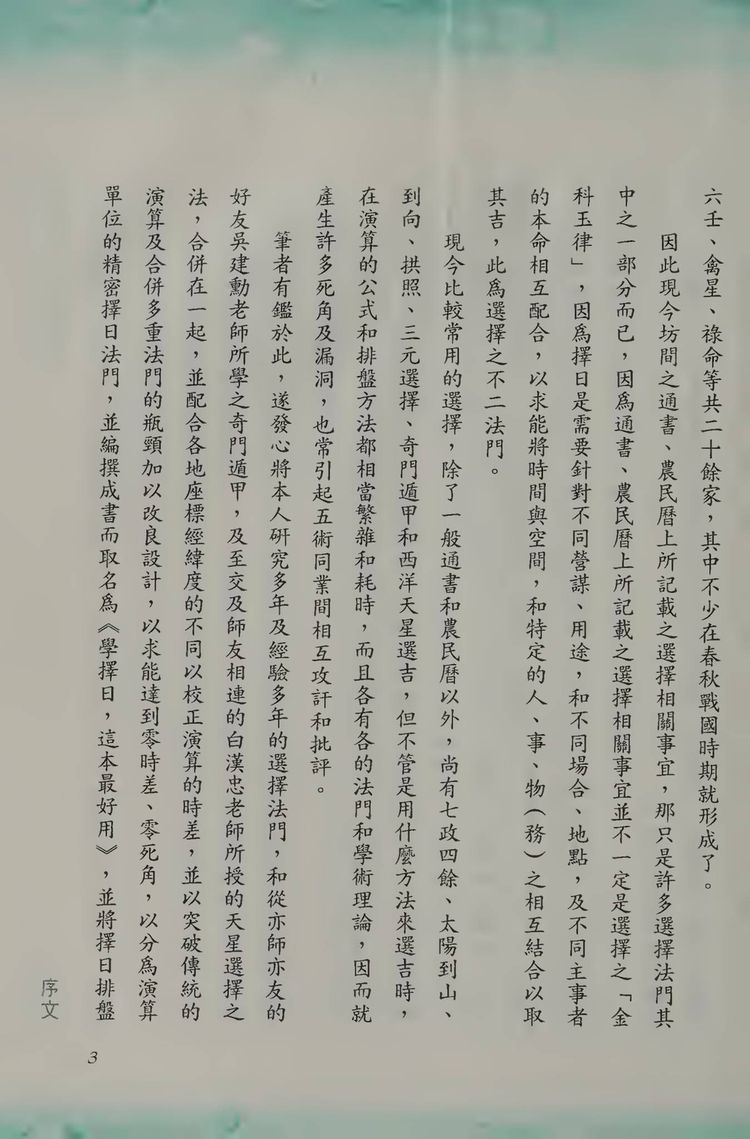 六壬、禽星、祿命等共二十餘家，其中不少在春秋戰國時期就形成了。
因此現今坊間之通書、農民曆上所記載之選擇相關事宜，那只是許多選擇法門其
中之一部分而已，因為通書、農民曆上所記載之選擇相關事宜並不一定是選擇之「金
科玉律」，因為擇日是需要針對不同營謀、用途，和不同場合、地點，及不同主事者
的本命相互配合，以求能將時間與空間，和特定的人、事、物（務）之相互結合以取
其吉，此為選擇之不二法門。
現今比較常用的選擇，除了一般通書和農民曆以外，尚有七政四餘、太陽到山、
到向、拱照、三元選擇、奇門遁甲和西洋天星選吉，但不管是用什麼方法來選吉時，
在演算的公式和排盤方法都相當繁雜和耗時，而且各有各的法門和學術理論，因而就
產生許多死角及漏洞，也常引起五術同業間相互攻訐和批評。
筆者有鑑於此，遂發心將本人研究多年及經驗多年的選擇法門，和從亦師亦友的
好友吳建勳老師所學之奇門遁甲，及至交及師友相連的白漢忠老師所授的天星選擇之
法，合併在一起，並配合各地座標經緯度的不同以校正演算的時差，並以突破傳統的
演算及合併多重法門的瓶頸加以改良設計，以求能達到零時差、零死角，以分為演算
單位的精密擇日法門，並編撰成書而取名為《學擇日，這本最好用》，並將擇日排盤
序文
3